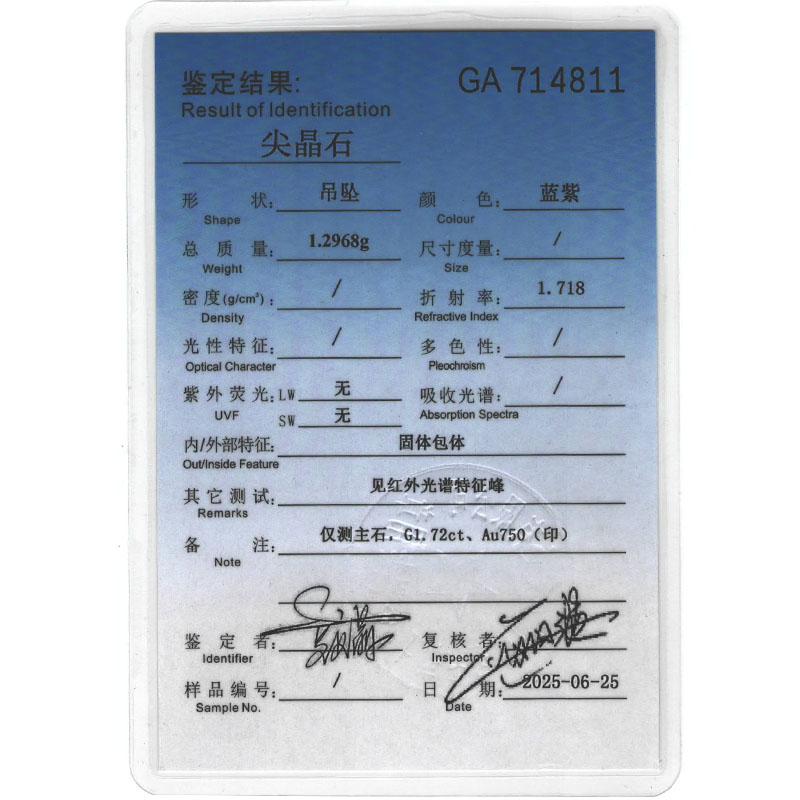 鉴定结果: GA 714811
Result of Identification
尖晶石
形 状: 吊坠 颜 色: 蓝紫
Shape Colour
总质量: 1.2968g 尺寸度量: /
Weight Size
密度(g/cm³): / 折射率: 1.718
Density Refractive Index
光性特征: / 多色性: /
Optical Character Pleochroism
紫外荧光: LW 无 吸收光谱: /
UVF SW 无 Absorption Spectra
内/外部特征: 固体包体
Out/Inside Feature
其它测试: 见红外光谱特征峰
Remarks
备 注: 仅测主石, G1,72ct、Au750(印)
Note
鉴定者: 复核者:
Identifier Inspector
样品编号: / 日 期: 2025-06-25
Sample No. Date